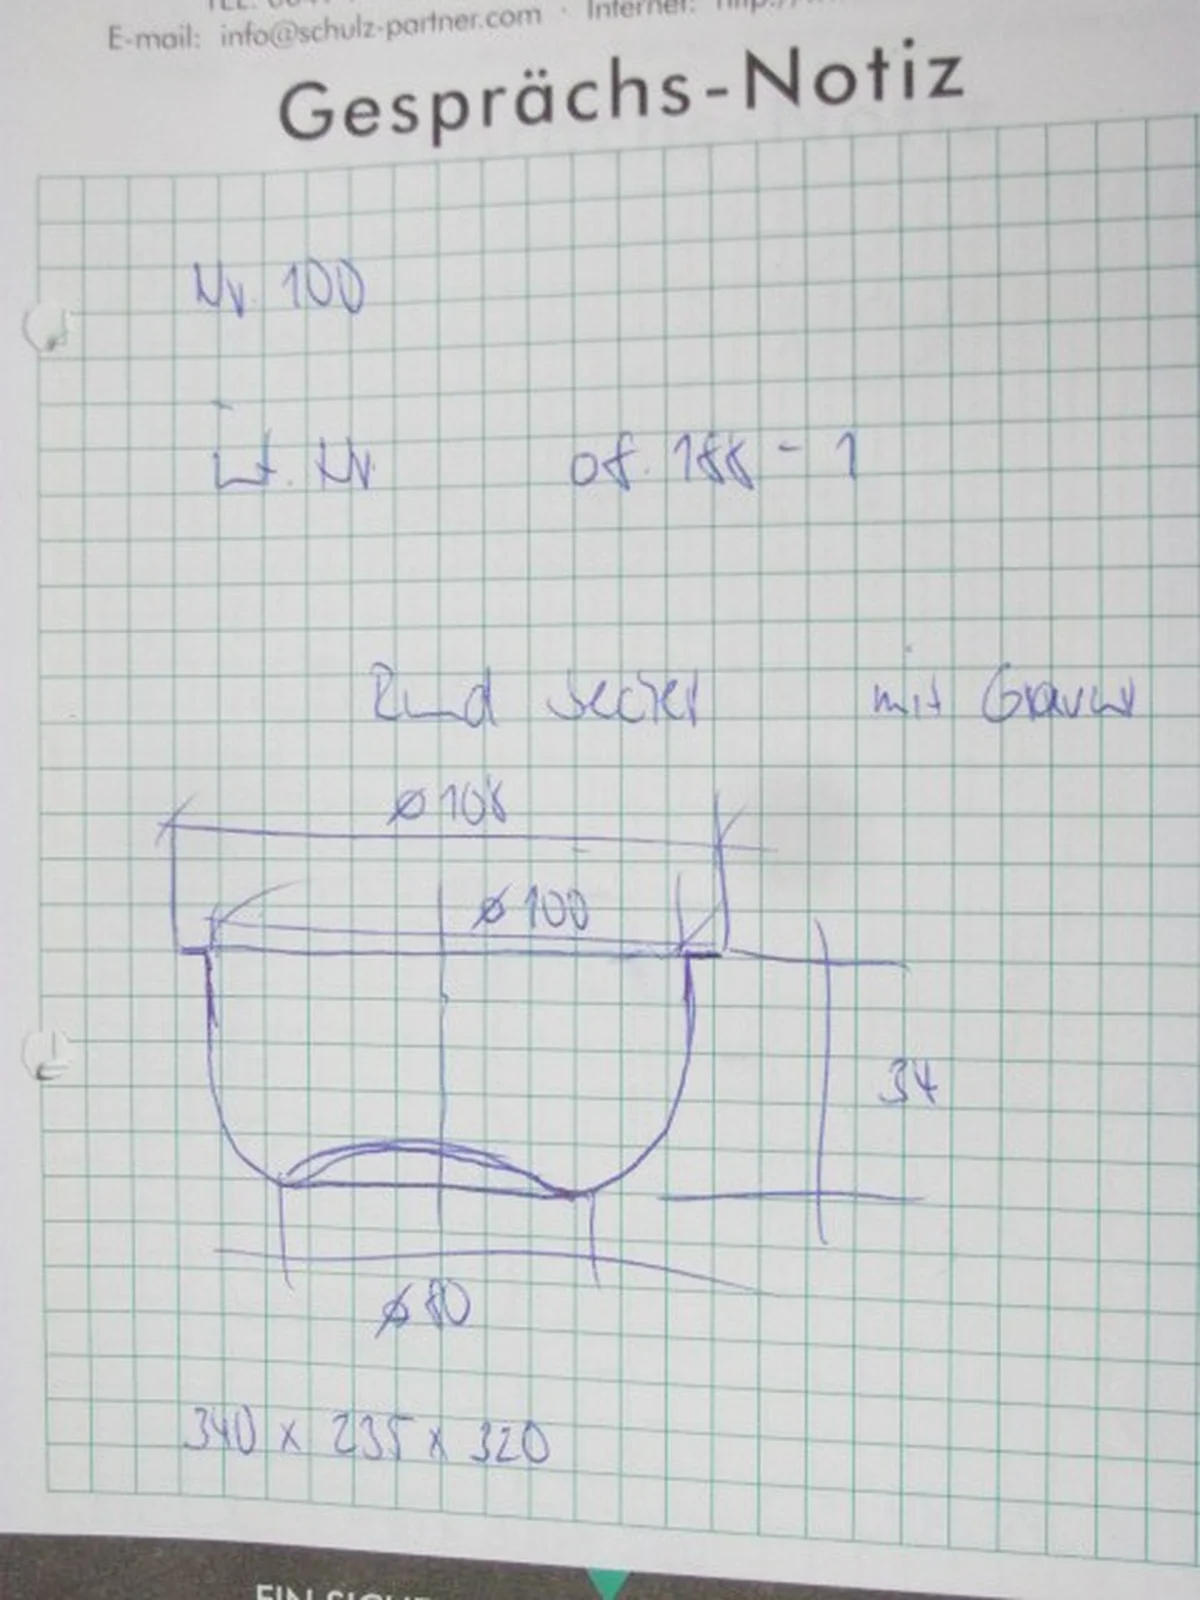 E-mail: info@schulz-partner.com · Internet:
Gesprächs-Notiz
Nr. 100
Nr. 188 - 1
Rund mit Gravur
ø 108
ø 100
34
ø 80
340 x 235 x 320